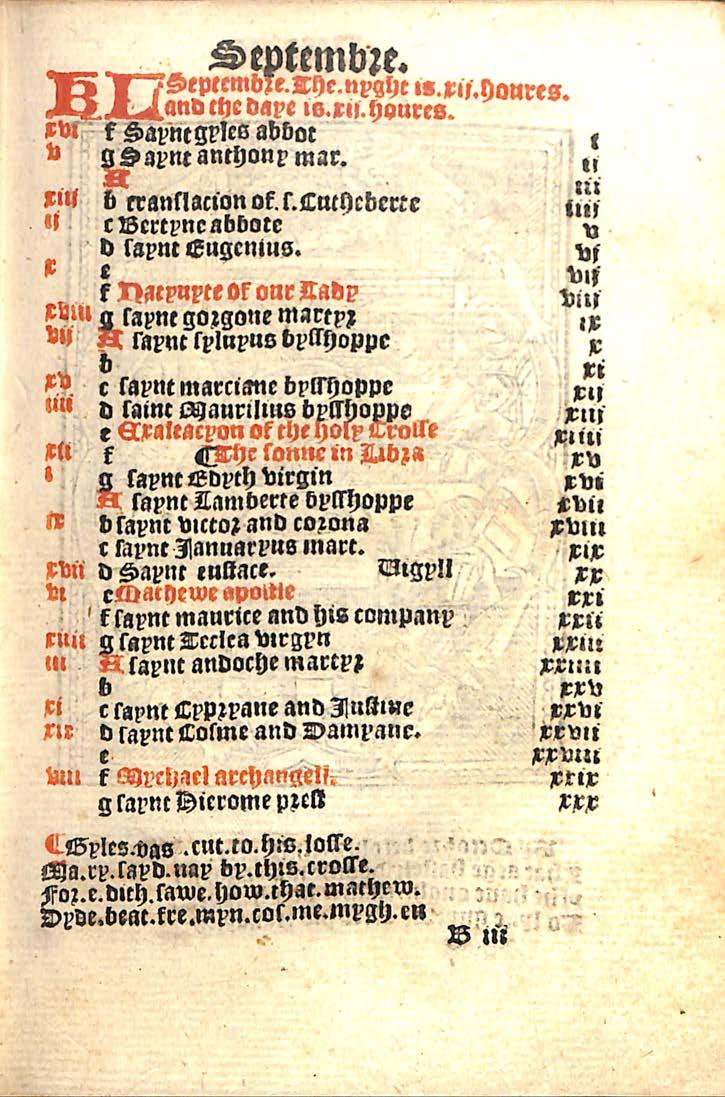 Septembre.
KL Septembre. The. nyght is. xij. houres.
and the daye is. xij. houres.
xvi f Saynt gyles abbot i
v g Saynt anthony mar. ij
A iii
xiij b translacion of. s. Cutheberte iiij
ij c Bertyne abbote v
d saynt Eugenius. vj
x e vij
f Natyuyte of our Lady viij
xviii g saynt gorgone martyr ix
vij A saynt syluyus bysshoppe x
b xi
xv c saynt marciane bysshoppe xij
iiii d saint Maurilius bysshoppe xiij
e Exaltacyon of the holy Crosse xiiii
xii f ¶The sonne in Libra xv
i g saynt Edyth virgin xvi
A saynt Lamberte bysshoppe xvii
ix b saynt victor and corona xviii
c saynt Januaryus mart. xix
xvii d Saynt eustace. Uigyll xx
vi e Mathewe apostle xxi
f saynt maurice and his company xxii
xiiii g saynt Teclea virgyn xxiii
iii A saynt andoche martyr xxiiii
b xxv
xi c saynt Cypryane and Justine xxvi
xix d saynt Cosme and Damyane. xxvii
e xxviii
viii f Mychael archangell. xxix
g saynt Hierome prest xxx
¶Gyles. vas .cut. to. his. losse.
Ma. ry. sayd. nay by. this. crosse.
For. e. dith. sawe. how. that. mathew.
Dyde. beat. fre. myn. cos. me. mygh. en
B iii